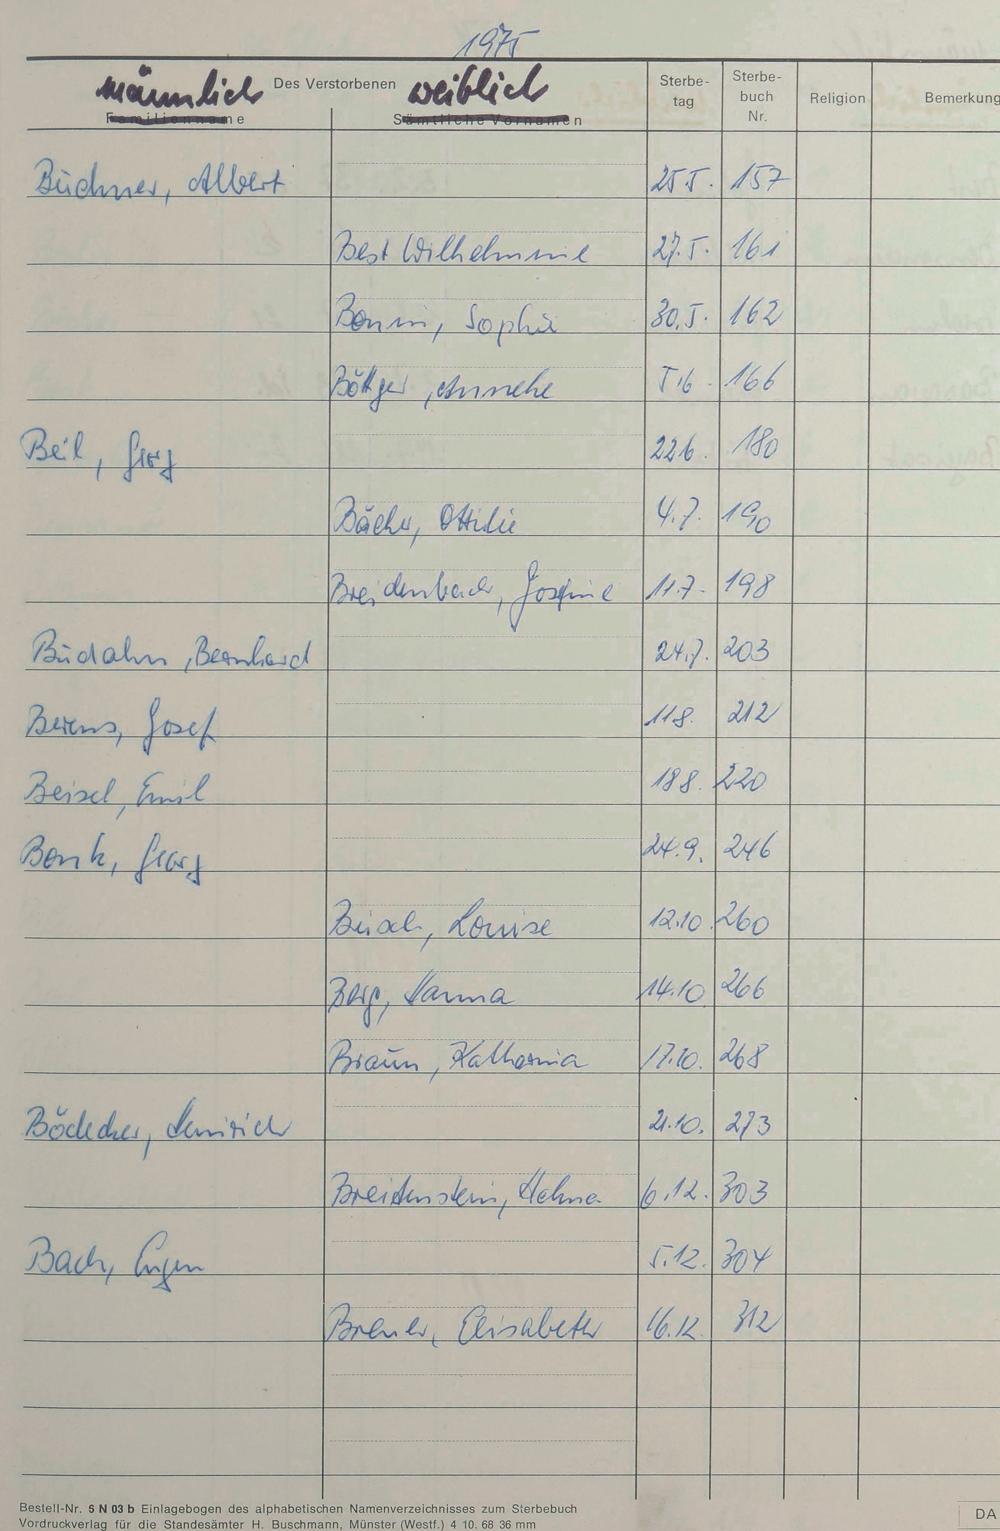 1975
männlich Des Verstorbenen weiblich Sterbe- Sterbe-
tag buch Religion Bemerkung
Familienname Sämtliche Vornamen Nr.
Büchner, Albert 25.5. 157
Best Wilhelmine 27.5. 161
Bonin, Sophie 30.5. 162
Böttger, Annelie 5.6. 166
Beil, Georg 22.6. 180
Bäcker, Ottilie 4.7. 190
Breidenbach, Josefine 11.7. 198
Budahn, Bernhard 24.7. 203
Berens, Josef 11.8. 212
Beisel, Emil 18.8. 220
Bonk, Georg 24.9. 246
Busch, Louise 12.10. 260
Berg, Hanna 14.10. 266
Braun, Katharina 17.10. 268
Bödecker, Heinrich 21.10. 273
Breitenstein, Helma 6.12. 303
Bach, Eugen 5.12. 304
Breuer, Elisabeth 16.12. 312
Bestell-Nr. 5 N 03 b Einlagebogen des alphabetischen Namenverzeichnisses zum Sterbebuch
Vordruckverlag für die Standesämter H. Buschmann, Münster (Westf.) 4 10. 68 36 mm
DA